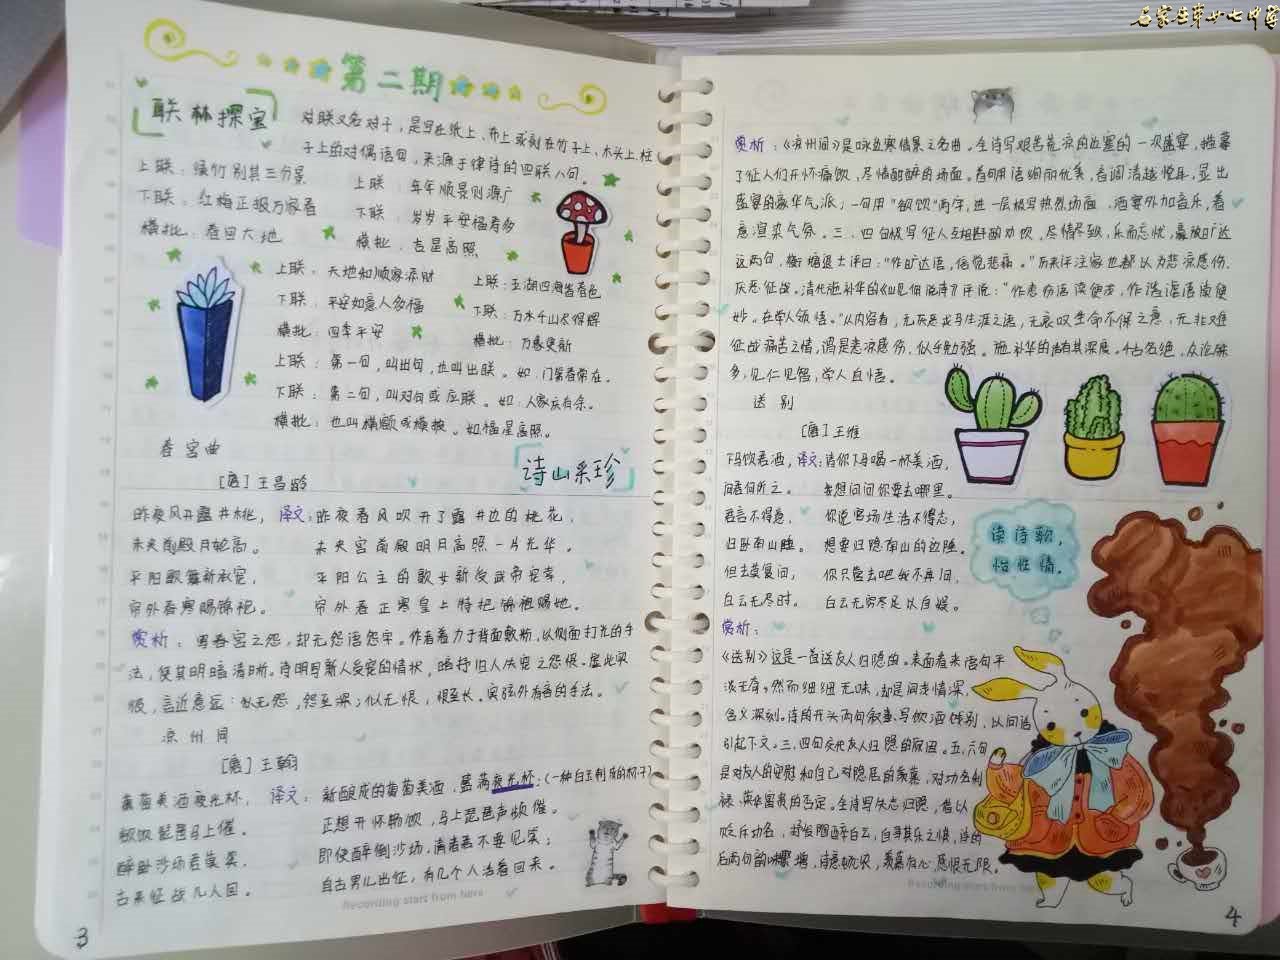 第二期
联林探宝
对联又名对子，是写在纸上、布上或刻在竹子上、木头上、柱
子上的对偶语句，来源于律诗的四联八句。
上联：绿竹别其三分景
下联：红梅正报万家春
横批：春回大地
上联：年年顺景则源广
下联：岁岁平安福寿多
横批：吉星高照
上联：天地和顺家添财
下联：平安如意人多福
横批：四季平安
上联：五湖四海皆春色
下联：万水千山尽得辉
横批：万象更新
上联：第一句，叫出句，也叫出联。如：门繁春常在。
下联：第二句，叫对句或应联。如：人家庆有余。
横批：也叫横额或横披。如福星高照。
诗山采珍
春宫曲
[唐]王昌龄
昨夜风开露井桃，
未央前殿月轮高。
平阳歌舞新承宠，
帘外春寒赐锦袍。
译文：昨夜春风吹开了露井边的桃花，
未央宫前殿明月高照一片光华。
平阳公主的歌女新受武帝宠幸，
帘外春正寒皇上特把锦袍赐她。
赏析：写春宫之怨，却无怨语怨字。作者着力于背面敷粉，以侧面打光的手
法，使其明暗清晰。诗明写新人受宠的情状，暗抒旧人失宠之怨恨。虚此实
彼，言近意远：似无怨，怨至深；似无恨，恨至长。实弦外有音的手法。
凉州词
[唐]王翰
葡萄美酒夜光杯，
欲饮琵琶马上催。
醉卧沙场君莫笑，
古来征战几人回。
译文：新酿成的葡萄美酒，盛满夜光杯；(一种白玉制成的杯子)
正想开怀畅饮，马上琵琶声频催。
即使醉倒沙场，请诸君不要见笑；
自古男儿出征，有几个人活着回来。
Recording starts from here
3
赏析：《凉州词》是咏边寒情景之名曲。全诗写艰苦荒凉的边塞的一次盛宴，描摹
了征人们开怀痛饮，尽情酣醉的场面。首句用语绚丽优美，音调清越悦耳，显出
盛宴的豪华气派；一句用“欲饮”两字，进一层极写热烈场面，酒宴外加音乐，着
意渲染气氛。三、四句极写征人互相斟酌劝饮，尽情尽致，乐而忘忧，豪放旷达
这两句，蘅塘退士评曰：“作旷达语，倍觉悲痛。”历来评注家也都以为悲凉感伤，
厌恶征战。清代施补华的《岘佣说诗》评说：“作悲伤语读便浅，作谐谑语读便
妙。在学人领悟。”从内容看，无厌恶戎马生涯之语，无哀叹生命不保之意，无非难
征战痛苦之情，谓是悲凉感伤，似乎勉强。施补华的话有其深度。千古名绝，众论殊
多，见仁见智，学人自悟。
送别
[唐]王维
下马饮君酒，
问君何所之。
君言不得意，
归卧南山陲。
但去莫复问，
白云无尽时。
译文：请你下马喝一杯美酒，
我想问问你要去哪里。
你说官场生活不得志，
想要归隐南山的边陲。
你只管去吧我不再问，
白云无穷尽足以自娱。
读诗歌，
怡性情。
赏析：
《送别》这是一首送友人归隐的。表面看来语句平
淡无奇，然而细细无味，却是词浅情深，
含义深刻。诗的开头两句叙事，写饮酒饯别，以问话
引起下文。三、四句交代友人归隐的原因。五、六句
是对友人的安慰和自己对隐居的羡慕，对功名利
禄、荣华富贵的否定。全诗写失志归隐，借以
贬斥功名，抒发陶醉白云，自寻其乐之情，诗的
后两句韵味骤增，诗意顿浓，羡慕有心，感恨无限。
Recording starts from he
4